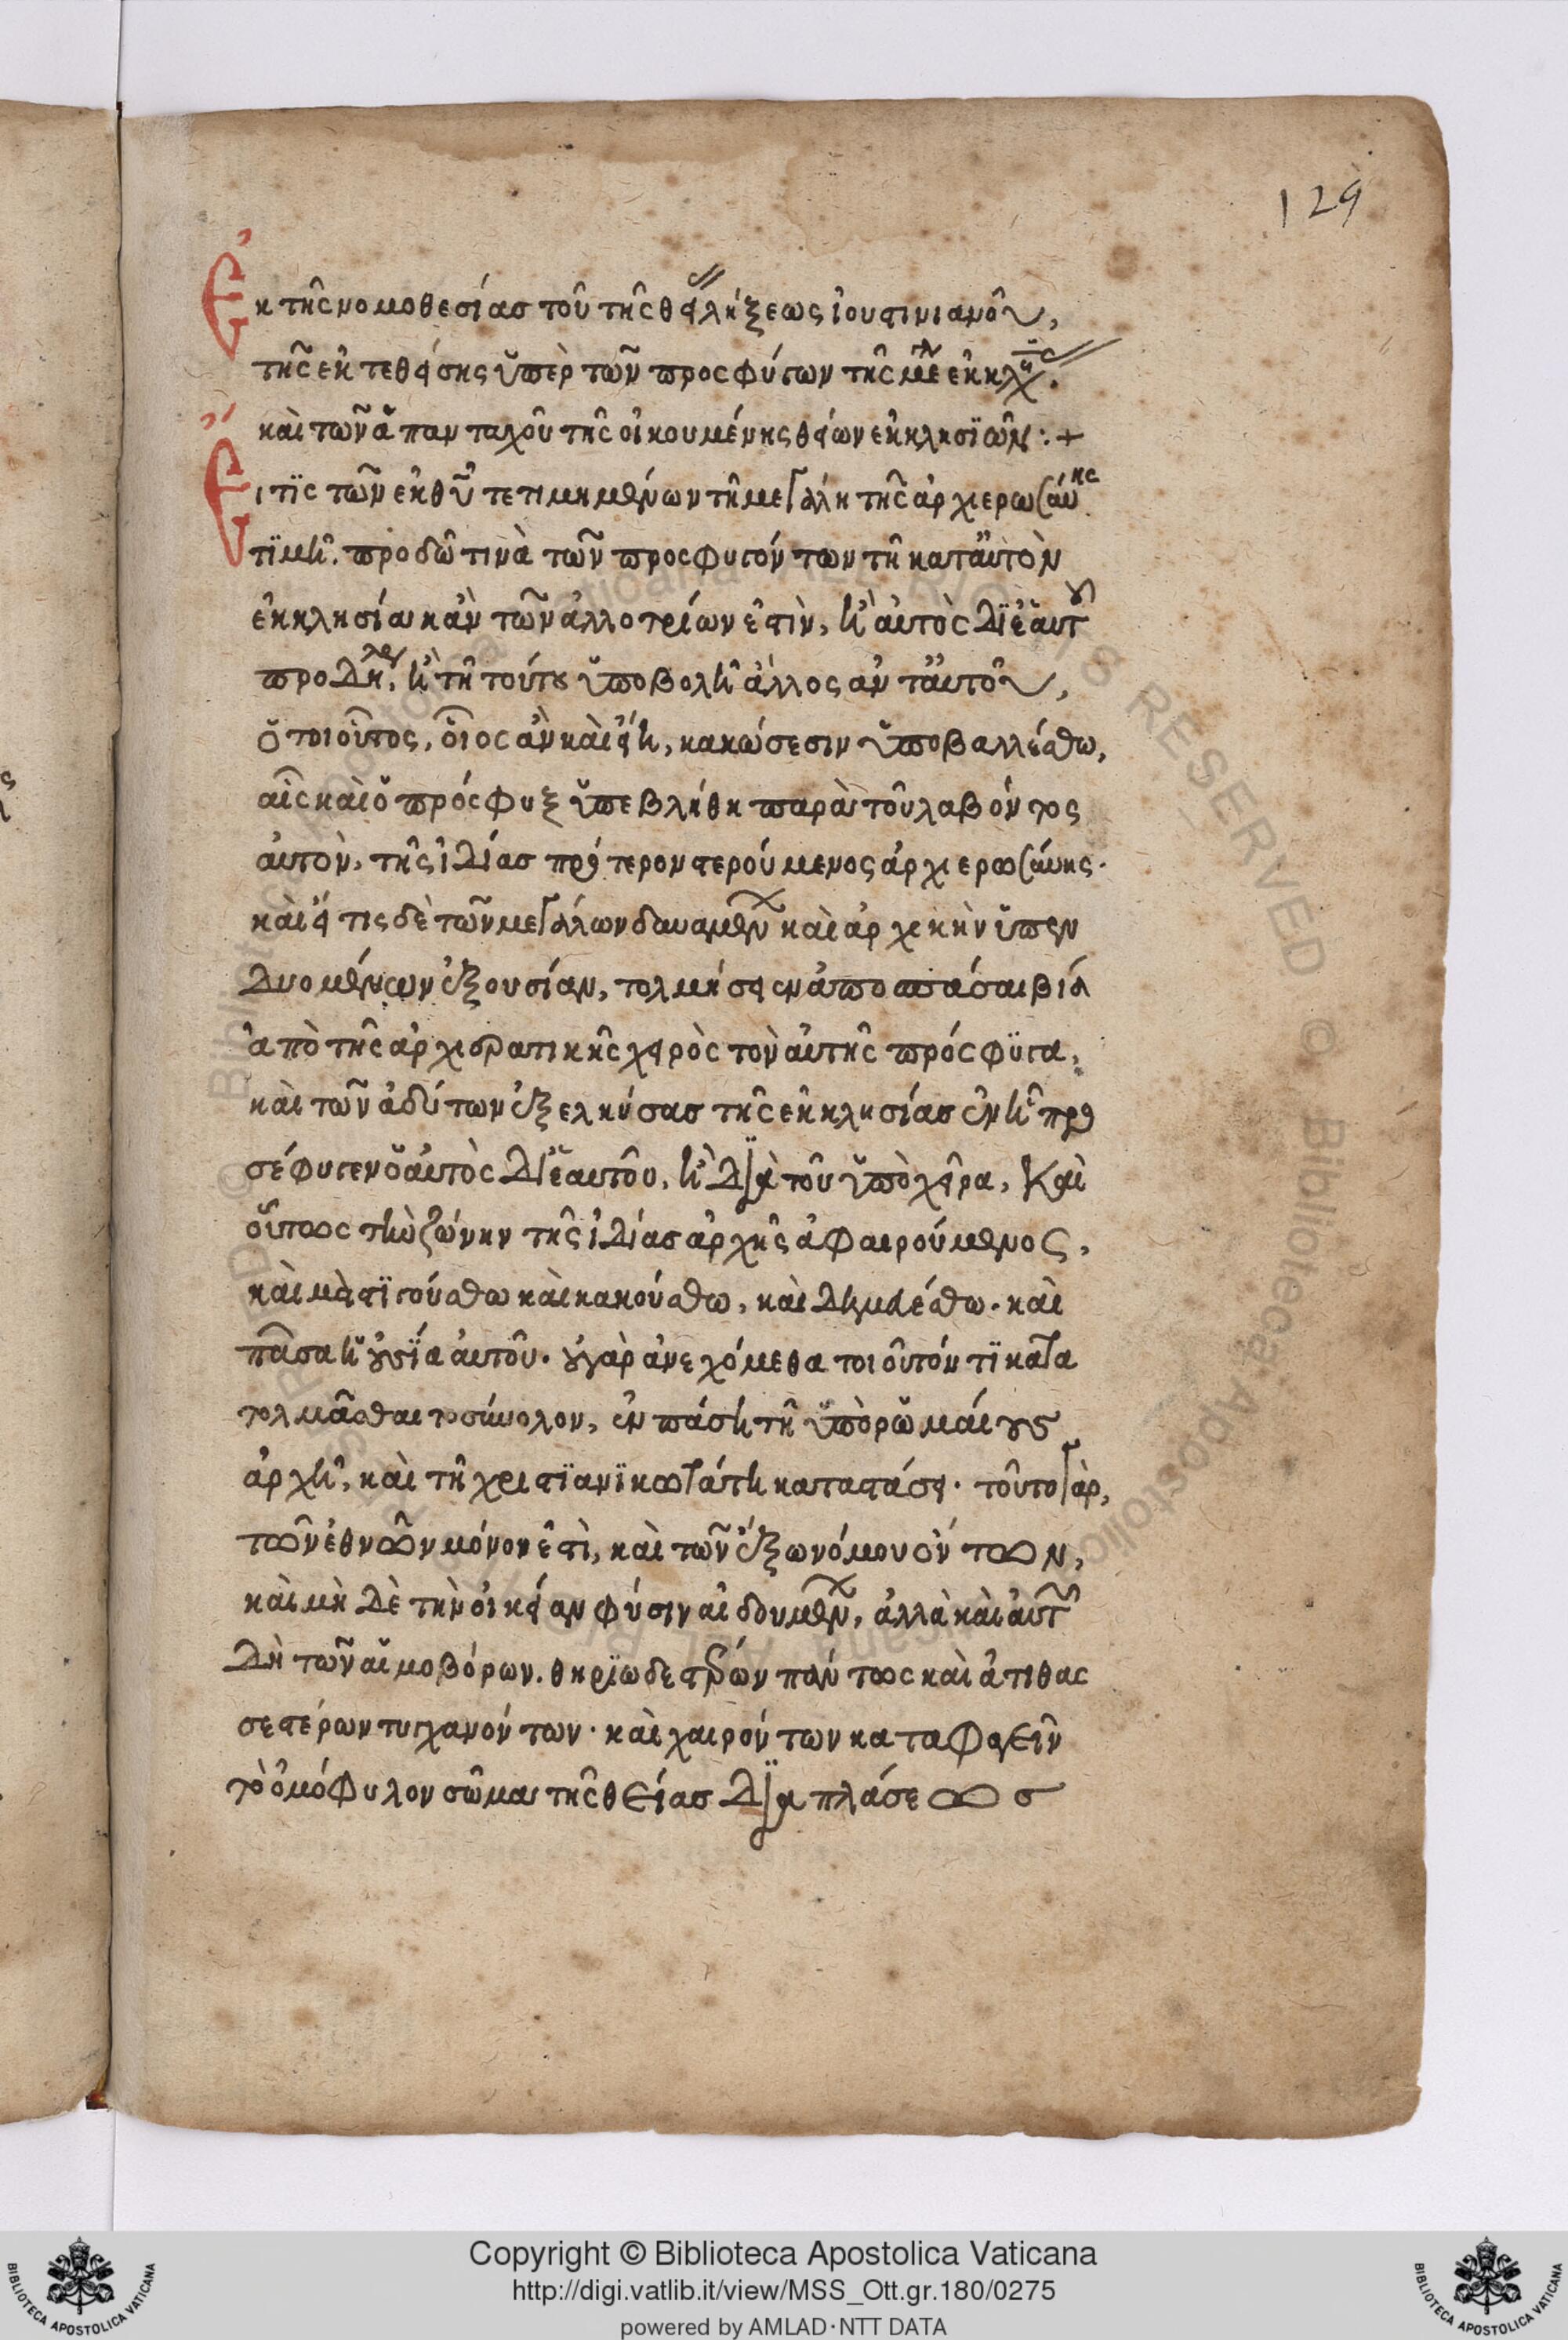 129
Ἐκ τῆς νομοθεσίας τοῦ τῆς θείας λήξεως ἰουστινιανοῦ,
τῆς ἐκτεθείσης ὑπὲρ τῶν προσφύγων τῆς μεγάλης ἐκκλησίας.
καὶ τῶν ἁπανταχοῦ τῆς οἰκουμένης θείων ἐκκλησιῶν :+
Εἴ τις τῶν ἐκ θεοῦ τετιμημένων τῇ μεγάλῃ τῆς ἀρχιερωσύνης
τιμῇ. προδῶ τινὰ τῶν προσφυγόντων τῇ κατ' αὐτὸν
ἐκκλησία κἂν τῶν ἀλλοτρίων ἐστὶν, ἢ αὐτὸς δι' ἑαυτοῦ
προδη, ἢ τῇ τούτου ὑποβολῇ ἄλλος ἀντ' αὐτοῦ,
ὁ τοιοῦτος, οἷος ἂν καὶ εἴη, κακώσεσιν ὑποβαλλέσθω,
αἷς καὶ ὁ πρόσφυξ ὑπεβλήθη παρὰ τοῦ λαβόντος
αὐτὸν, τῆς ἰδίας πρότερον στερούμενος ἀρχιερωσύνης.
καὶ εἴ τις δὲ τῶν μεγάλων δυναμένων καὶ ἀρχικὴν ὑπεν
δυομένων ἐξουσίαν, τολμήσειεν ἀποσπάσαι βία
ἀπὸ τῆς ἀρχιερατικῆς χειρὸς τὸν αὐτῆς πρόσφυγα,
καὶ τῶν ἀδύτων ἐξελκύσας τῆς ἐκκλησίας ἐν ᾗ προ
σέφυγεν ὁ αὐτὸς δι' ἑαυτοῦ, ἢ διὰ τοῦ ὑπὸ χεῖρα, καὶ
οὗτος τὴν ζώνην τῆς ἰδίας ἀρχῆς ἀφαιρούμενος,
καὶ μαστιγούσθω καὶ κακούσθω, καὶ δημευέσθω. καὶ
πᾶσα ἡ οὐσία αὐτοῦ. οὐ γὰρ ἀνεχόμεθα τοιοῦτόν τι κατα
τολμᾶσθαι τοσύνολον, ἐν πάσῃ τῇ ὑπὸ ῥωμαίους
ἀρχῇ, καὶ τῇ χριστιανικωτάτῃ καταστάσει. τοῦτο γὰρ,
τῶν ἐθνῶν μόνον ἐστὶ, καὶ τῶν ἔξω νόμου ὄντων,
καὶ μὴ δὲ τὴν οἰκείαν φύσιν αἰδουμένων, ἀλλὰ καὶ αὐτῶν
δὴ τῶν αἱμοβόρων. θηριωδεστέρων πάντως καὶ ἀτιθας
σεστέρων τυγχανόντων. καὶ χαιρόντων καταφαγεῖν
τὸ ὁμόφυλον σῶμα τῆς θείας διαπλάσεως
Copyright © Biblioteca Apostolica Vaticana
http://digi.vatlib.it/view/MSS_Ott.gr.180/0275
powered by AMLAD·NTT DATA